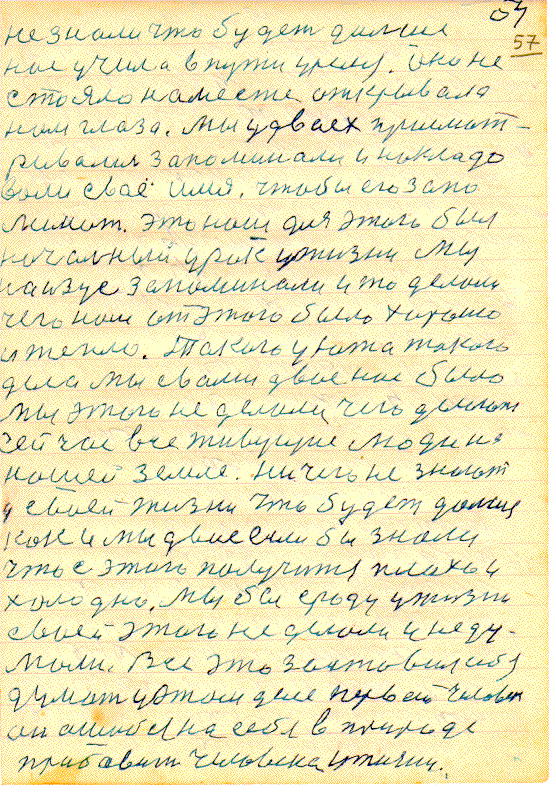 57
57
не знали что будет далше
нас учила в пути урснд. Оно не
стояло на месте открывала
ном глаза. Мы удвоех присмот-
ривалис запоминали и накладо
вали своё имя, чтобы его запо
минат. Это нош для этого был
началный урок ужизни Мы
наизус запоминали и то делали
чего нам от этого было хорошо
и тепло. Такого ужа такого
дела мы свами двое нас было
мы этого не делали чего делают
сейчас все живущие люди на
нашей земле. Ничего не знают
у своей жизни что будет далше
как и мы двое если бы знали
что с этого получится плахо и
холодно. Мы бы сроду ужизни
своей этого не делали и не ду-
мали. Все это заставил себя
думат у этом деле первой человек
он ошибся на себя в природе
прибавит человека ужизни.